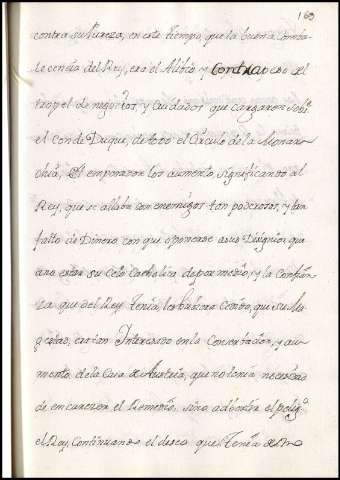 163
contra su Pureza, en este tiempo, que la buena Conba-
lecencia del Rey, era el Alibio, y Contra peso del
tropel de negocios, y Cuidados que cargaron sobr.
el conde Duque, de todo el Circulo de la Monar-
chia, El emperador los aumento, significando al
Rey, que se allaba con enemigos tan poderosos, y tan
falto de Dinero con que oponerse a sus Disignios que
a no estar su Celo Catholico de por medio, y la Confian-
za que del Rey tenia, los hubiera Cedido, qui su Ma-
gestad, tan Interesado en la Conserbacion, y au-
mento de la Casa de Austria, que no tenia necesidad
de encarecer el Remedio, sino adbertir el polig.º
el Rey, Continuando el deseo que tenia de